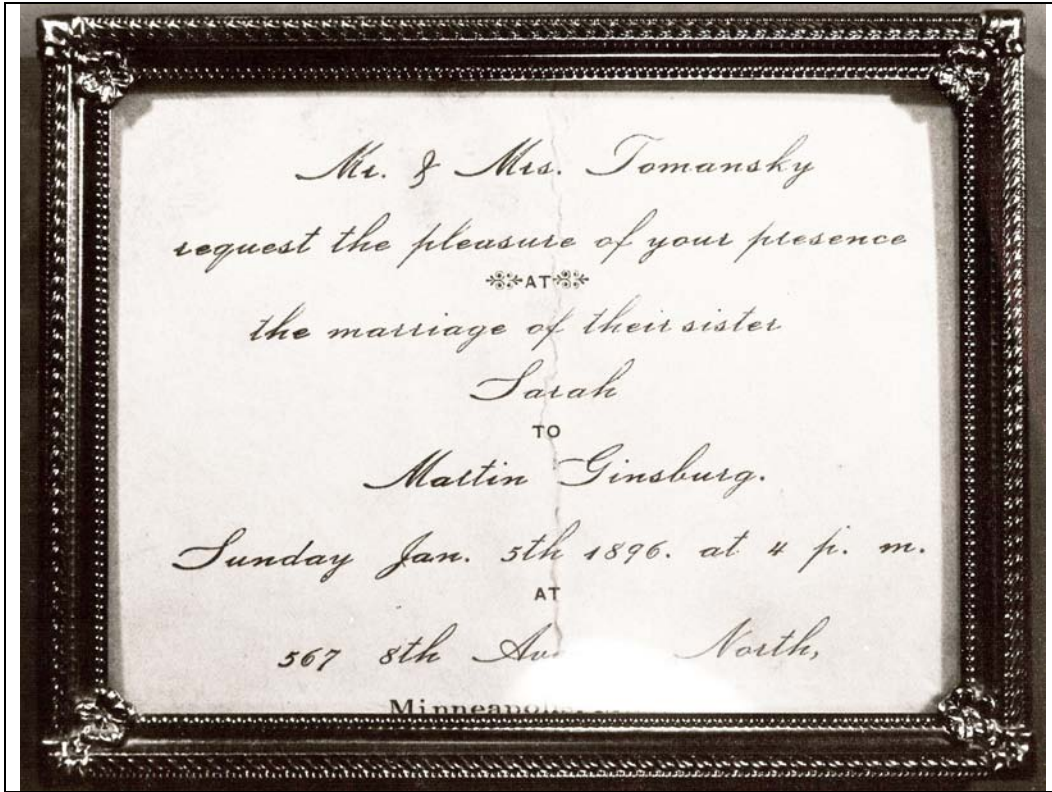 Mr. & Mrs. Tomansky
request the pleasure of your presence
AT
the marriage of their sister
Sarah
TO
Martin Ginsburg.
Sunday Jan. 5th 1896. at 4 p. m.
AT
567 8th North,